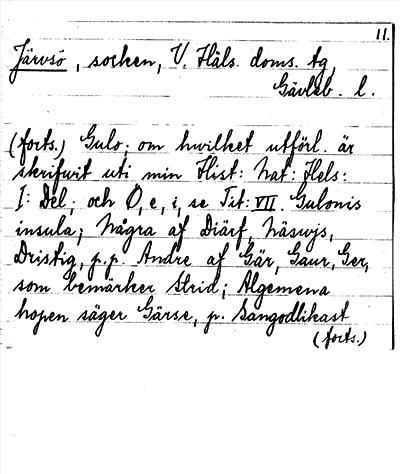 11.
Järvsö, socken, V. Häls. doms. tg,
Gävleb. l.
(forts.) Gulo; om hwilket utförl. är
skrifwit uti min Hist: Nat: Hels:
I: Del; och O, e, i, se Tit: VII. Gulonis
insula; Några af Diärf, Näswjs,
Dristig, p.p. Andre af Gär, Gaur, Ger,
som bemärker Strid; Algemena
hopen säger Gärse, p. Sangodlikast
(forts.)